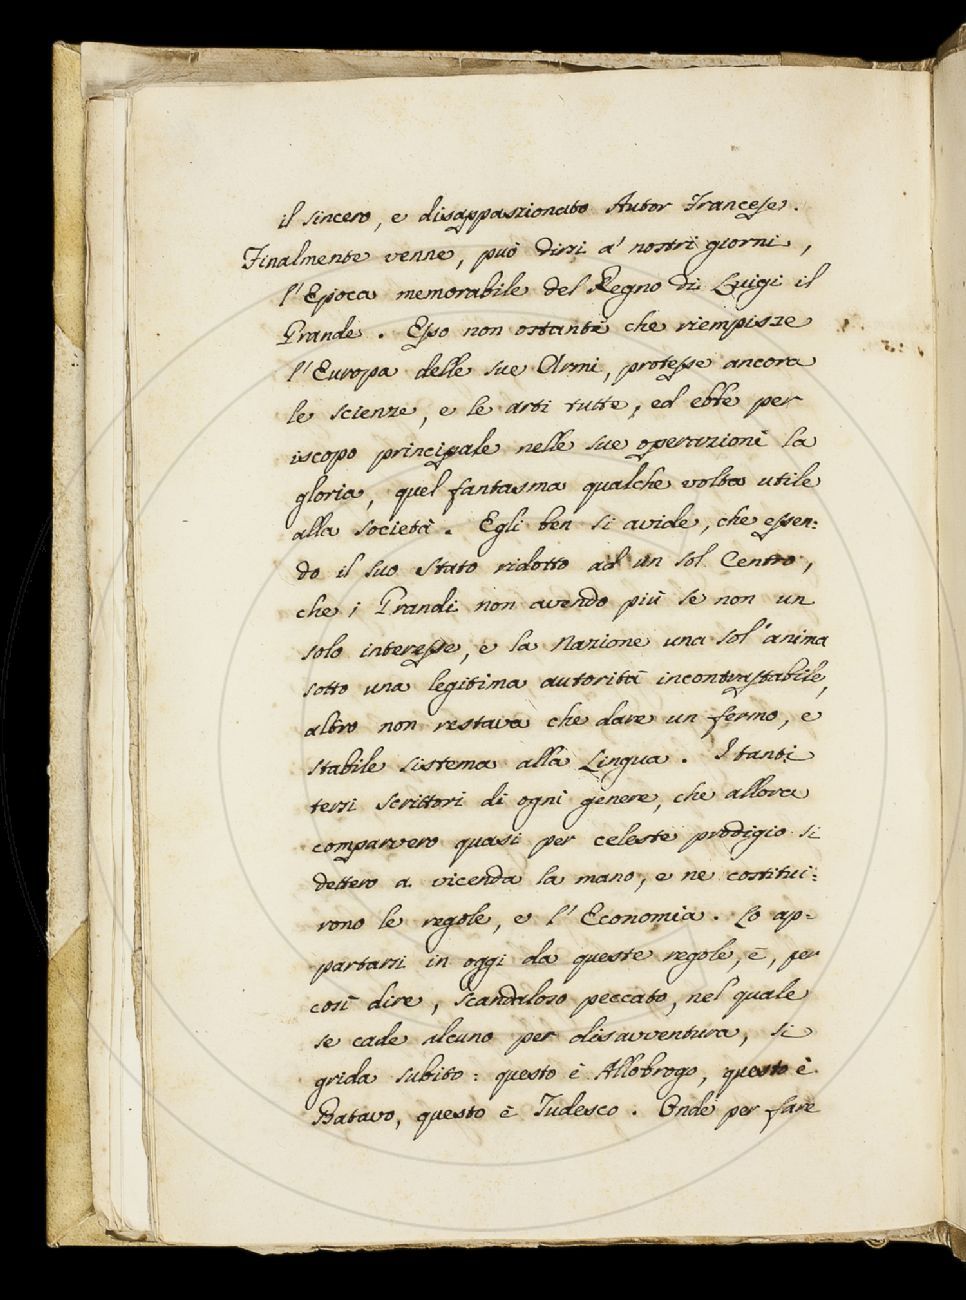 il sincero, e disappassionato Autor Francese.
Finalmente venne, può dirsi a' nostri giorni,
l'Epoca memorabile del Regno di Luigi il
Grande. Esso non ostante che riempisse
l'Europa delle sue Armi, protesse ancora
le scienze, e le arti tutte, ed ebbe per
iscopo principale nelle sue operazioni la
gloria, quel fantasma qualche volta utile
alla società. Egli ben si avide, che essen:
do il suo Stato ridotto ad un sol Centro,
che i Grandi non avendo più se non un
solo interesse, e la Nazione una sol'anima
sotto una legitima autorità incontrastabile,
altro non restava che dare un fermo, e
stabile sistema alla Lingua. I tanti
tersi scrittori di ogni genere, che allora
comparvero quasi per celeste prodigio si
dettero a vicenda la mano, e ne costitui:
rono le regole, e l'Economia. Lo ap-
partarsi in oggi da queste regole, è, per
così dire, scandaloso peccato, nel quale
se cade alcuno per disavventura, si
grida subito: questo è Allobrogo, questo è
Batavo, questo è Tudesco. Onde per fare